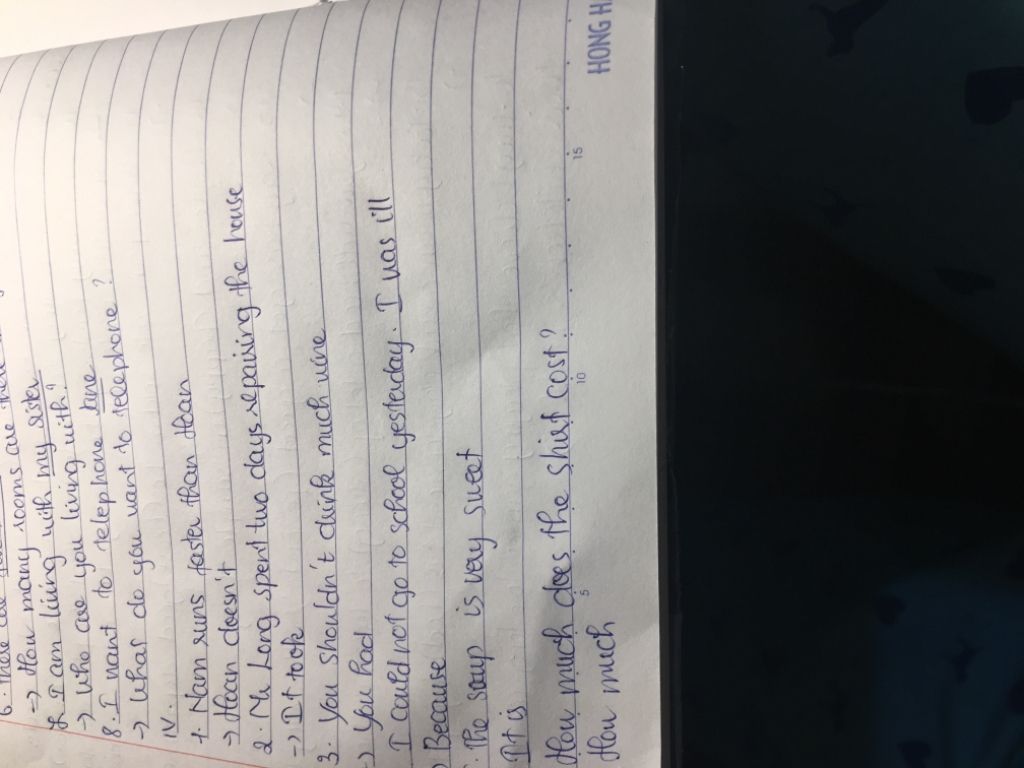 6. There are
-> How many rooms are there
7. I am living with my sister
-> Who are you living with?
8. I want to telephone
-> What do you want to telephone?
IV.
1. Nam runs faster than Hoan
-> Hoan doesn't
2. Mr Long spent two days repairing the house
-> It took
3. You shouldn't drink much wine
-> You had
I could not go to school yesterday. I was ill
Because
The soup is very sweet
It is
How much does the shirt cost?
How much
5 10 15
HONG H